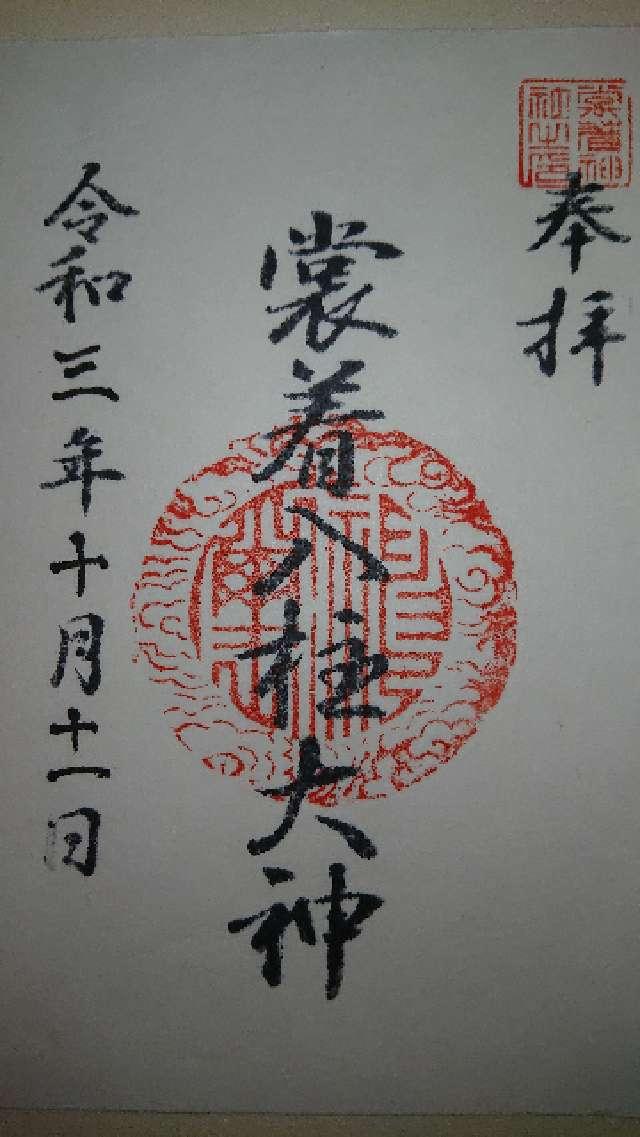 裳着神社之印
奉拝
裳着八柱大神
令和三年十月十一日